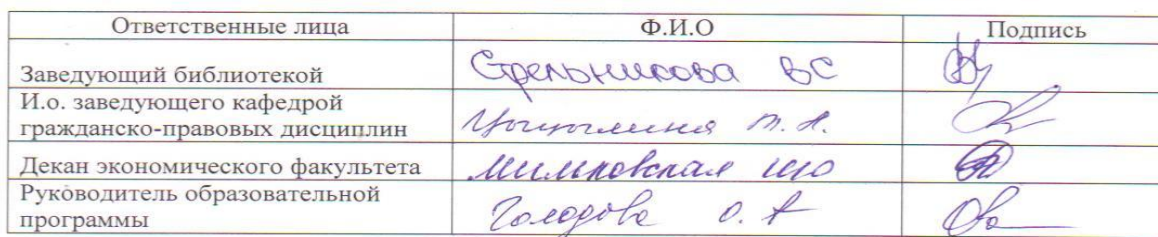 Ответственные лица Ф.И.О Подпись
Заведующий библиотекой Стрельникова ВС
И.о. заведующего кафедрой
гражданско-правовых дисциплин
Декан экономического факультета
Руководитель образовательной
программы Голодова О. А